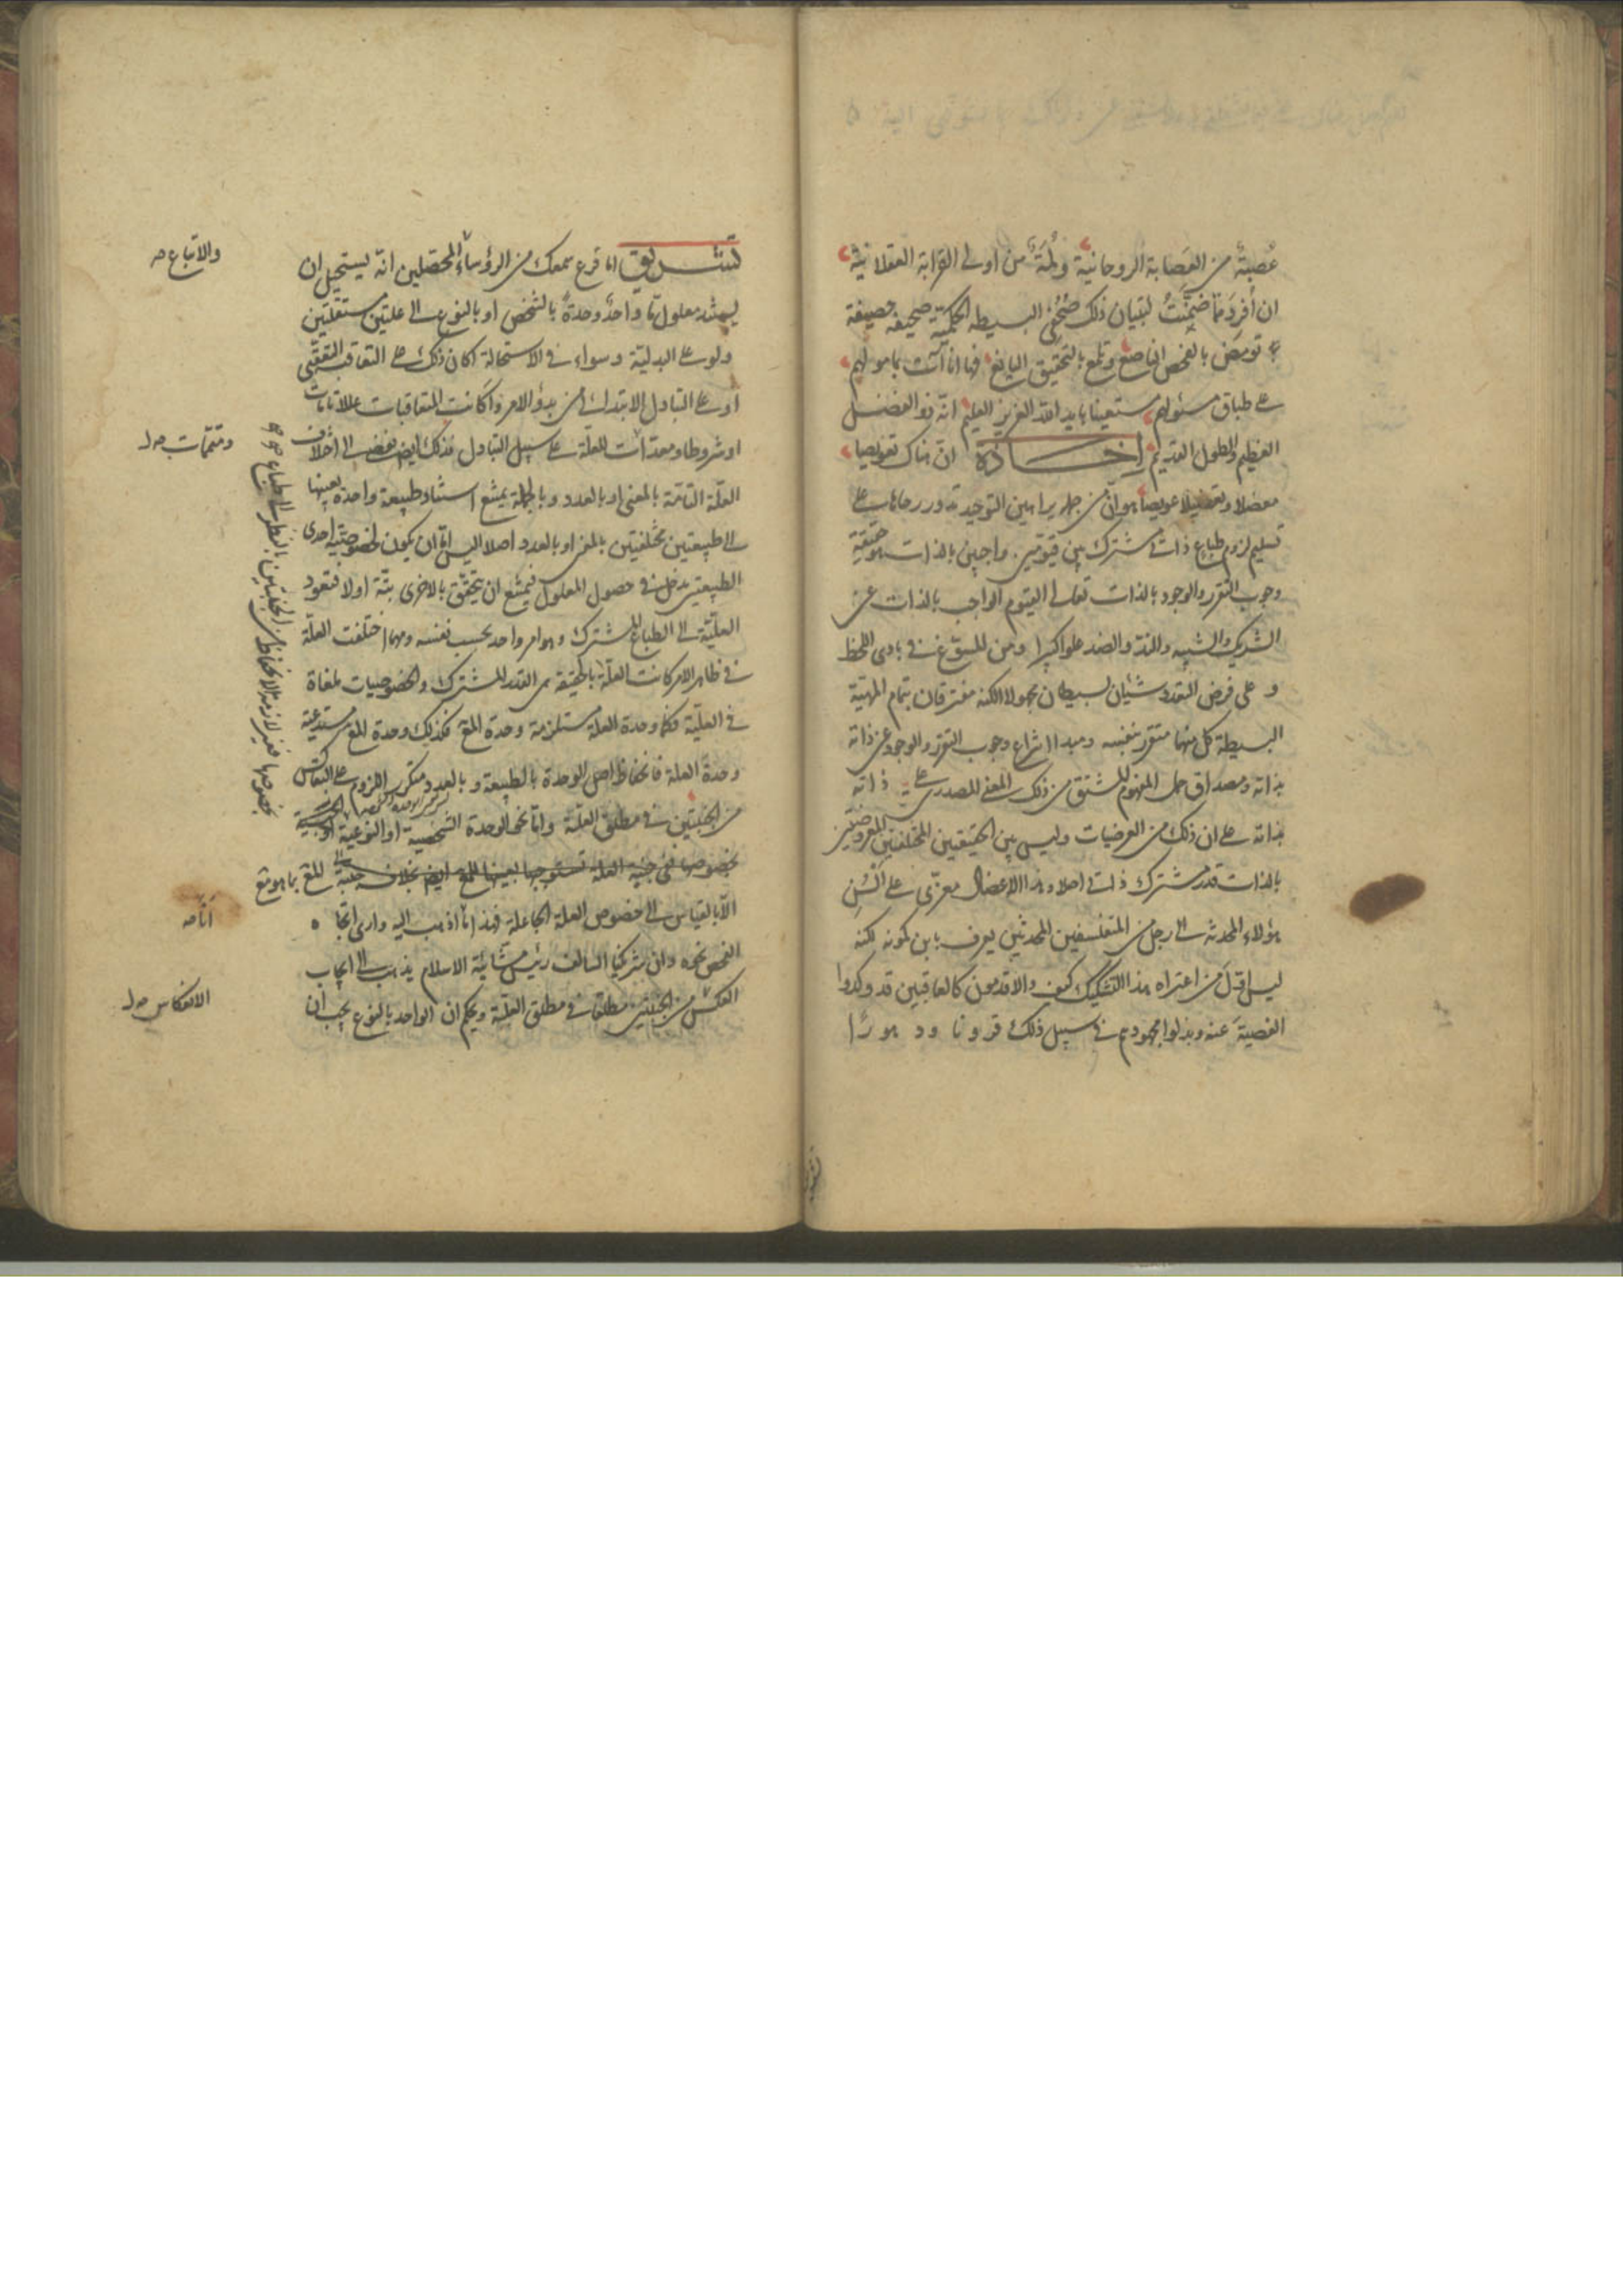 عُصبةٌ من العَصابة الروحانيّة ولُمَةٌ من اولى القرابة العقلانيّة
ان أفرد ممّا ضمِّنَتْ لتبيان ذلك صُحُفى البسيطه الحكميّة صحيفة حصيفة
تومَض بالفحص الناصع وتلمع بالتحقيق اليانع فها انا آت بما هو لهم
على طباق مسئولهم مستعينا بايد الله العزيز العليم انّه ذو الفضل
العظيم والطول القديم ان هناك تعويصا
معضلا و عويصا هو انّ من جلّ براهين التوحيد تدور رحاها على
تسليم لزوم طباع ذاتى مشترك بين قيّومين واجبين بالذات هو حقيقة
وجوب التقرر والوجود بالذات تعالى القيوم الواجب بالذات عن
الشريك والشبيه والندّ والضد علوا كبيرا ومن المستوغ فى بادى اللحظ
وعلى فرض التعدد شيئان بسيطان مجهولا الكنه مفترقان بتمام المهيّة
البسيطة كل منهما متقرر بنفسه ومبدا انتزاع وجوب التقرر والوجود عن ذاته
بذاته ومصداق حمل المفهوم المشتق من ذلك المعنى المصدرى على ذاته
بذاته على ان ذلك من العرضيات وليس بين الحقيقتين المختلفتين المعروضتين
بالذات قدر مشترك ذاتى اصلا وهذا الاعضال معزّى على ألسُن
هؤلاء المحدثه الى رجل من المتفلسفين المحدثين يعرف بابن كمونه لكنه
ليس اوّلَ من اعتراه هذا التشكيك كيف والاقدمون كالعاقبين قد وكدوا
الفصيةَ عنه وبذلوا مجهودهم فى سبيل ذلك قرونا ودهورًا
اما قرع سمعك من الرؤساء المحصّلين انّه يستحيل ان
يستند معلول مّا واحدٌ وحدةً بالشخص او بالنوع الى علتين مستقلتين
ولو على البدليّة وسواء فى الاستحالة اكان ذلك على التعاقب التعقّبى
او على التبادل الابتدائى من بدؤ الامر واكانت المتعاقبات عللا تامات
او شروطا ومعدّات للعلّة على سبيل التبادل فذلك ايض يفضى الى اختلاف
العلّة التامّة بالمعنى او بالعدد وبالجملة يمتنع استناد طبيعة واحدة بعينها
الى طبيعتين مختلفتين بالمعنى او بالعدد اصلا اليس امّا ان يكون لخصوصيّة احدى
الطبيعتين مدخل فى حصول المعلول فيمتنع ان يتحقّق بالاخرى بتّة اولا فتعود
العليّة الى الطباع المشترك وهو امر واحد بحسب نفسه ومهما اختلفت العلّة
فى ظاهر الامر كانت العلّة بالحقيقة هى القدر المشترك والخصوصيات ملغاة
فى العلّية فكما وحدة العلة مستلزمة وحدة المع فكذلك وحدة المع مستدعية
وحدة العلة فانحفاظ اصل الوحدة بالطبيعة وبالعدد متكرر اللزوم على التعاكس
من الجنبتين فى مطلق العلّة وامّا نحو الوحدة الشخصية او النوعية او الجنسية
بخصوصها ففى جنبة العلة تستوجبها بعينها للمع ايض بخلاف جنبة المع بما هو مع
الّا بالقياس الى خصوص العلة الجاعلة فهذا ما اذهب اليه وارى اتجاه
الفحص نحوه وان شريكنا السالف رئيس مشّائية الاسلام يذهب الى ايجاب
العكس من الجنبتين مطلقا فى مطلق العليّة ويحكم ان الواحد بالنوع يجب ان
والاتباع صه
ومتممات صه ل
أنّا صه
الانعكاس صه ل